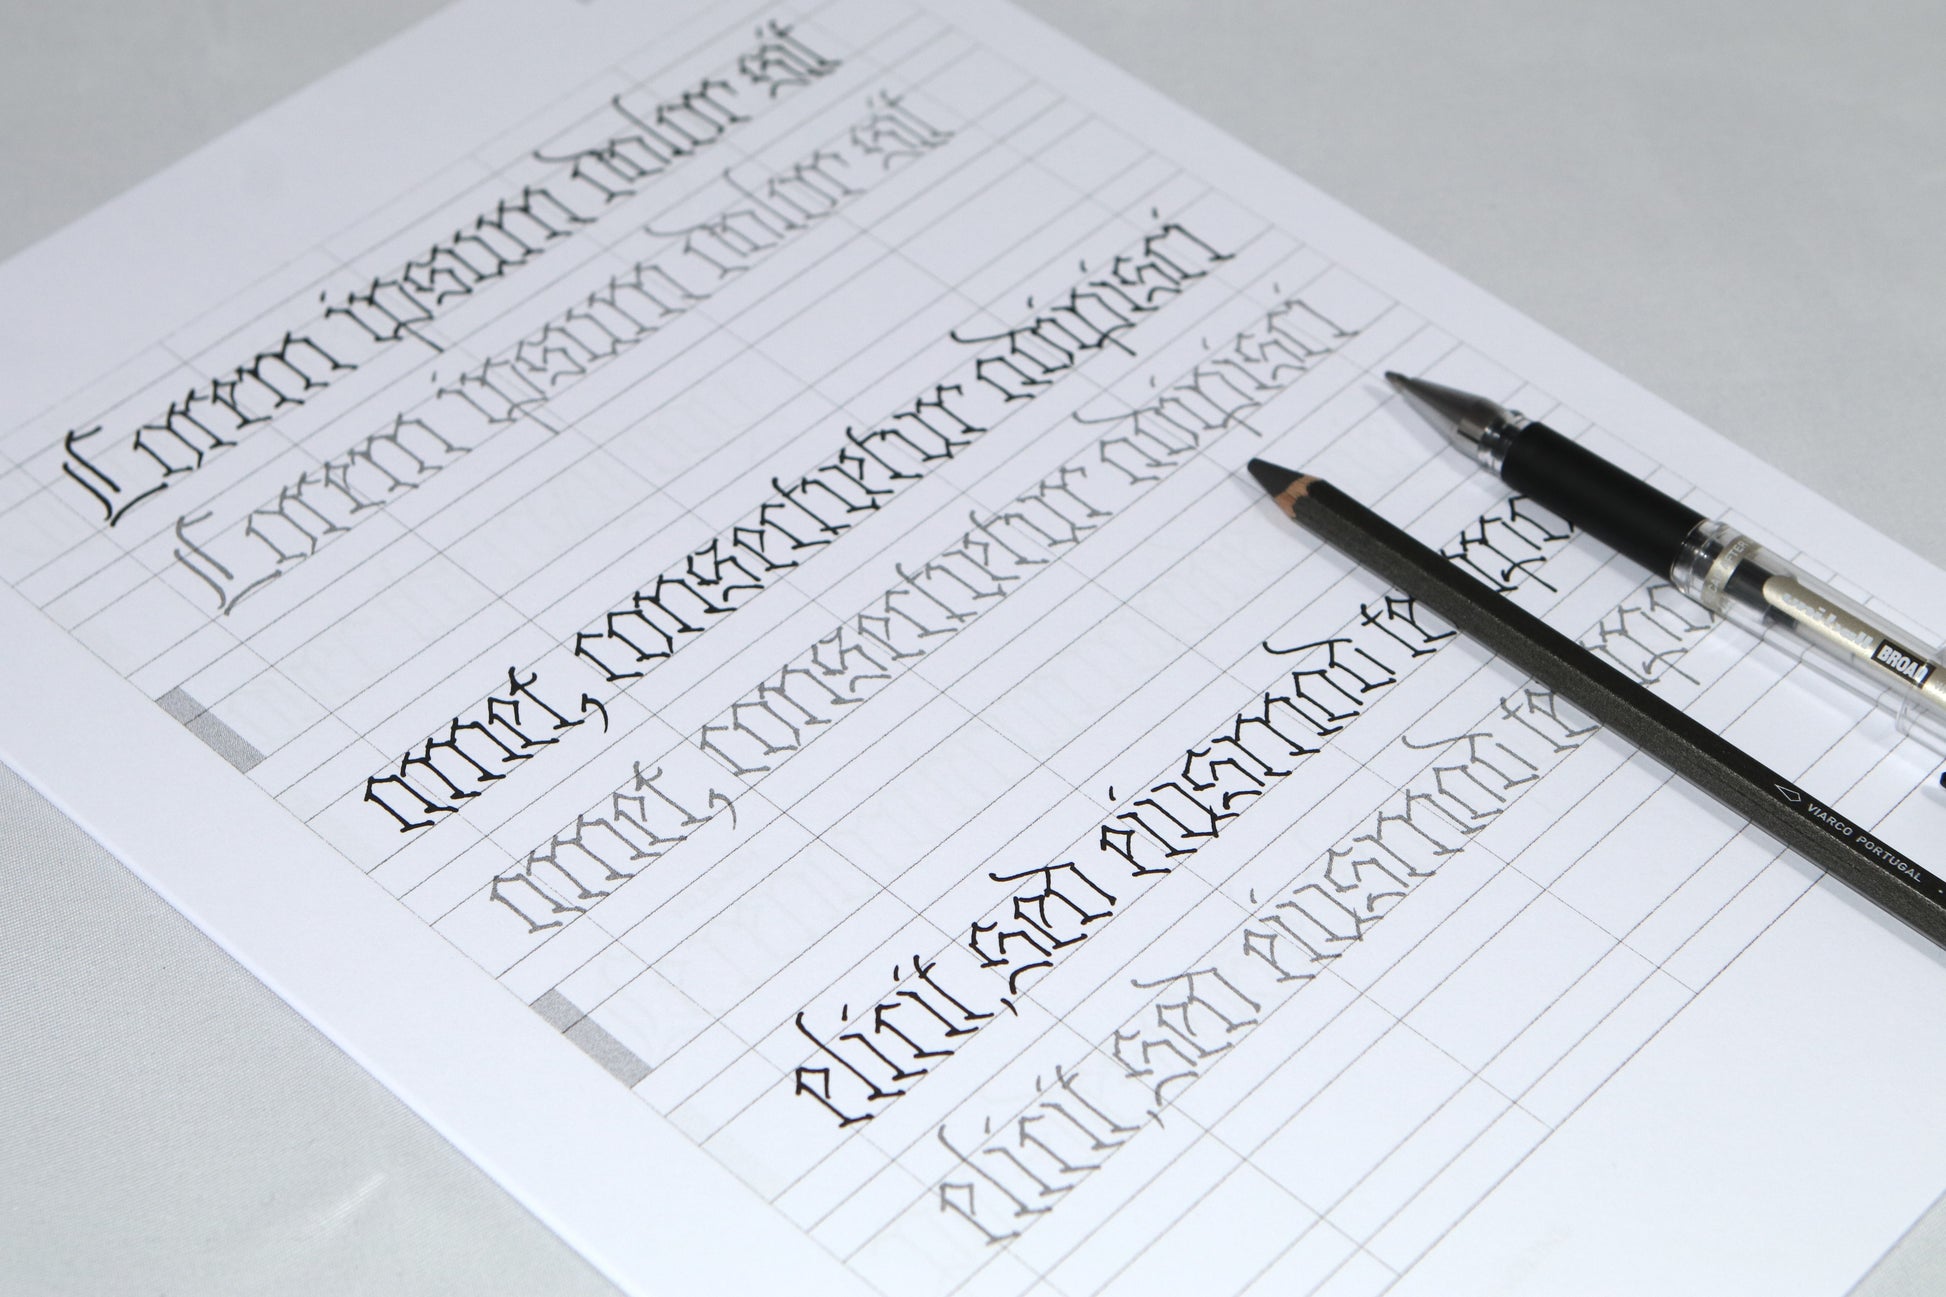 Lorem ipsum dolor sit
Lorem ipsum dolor sit
amet, consectetur adipisci
amet, consectetur adipisci
elicit, sed eiusmod
elicit, sed eiusmod
uni-ball BROAD
VIARCO PORTUGAL